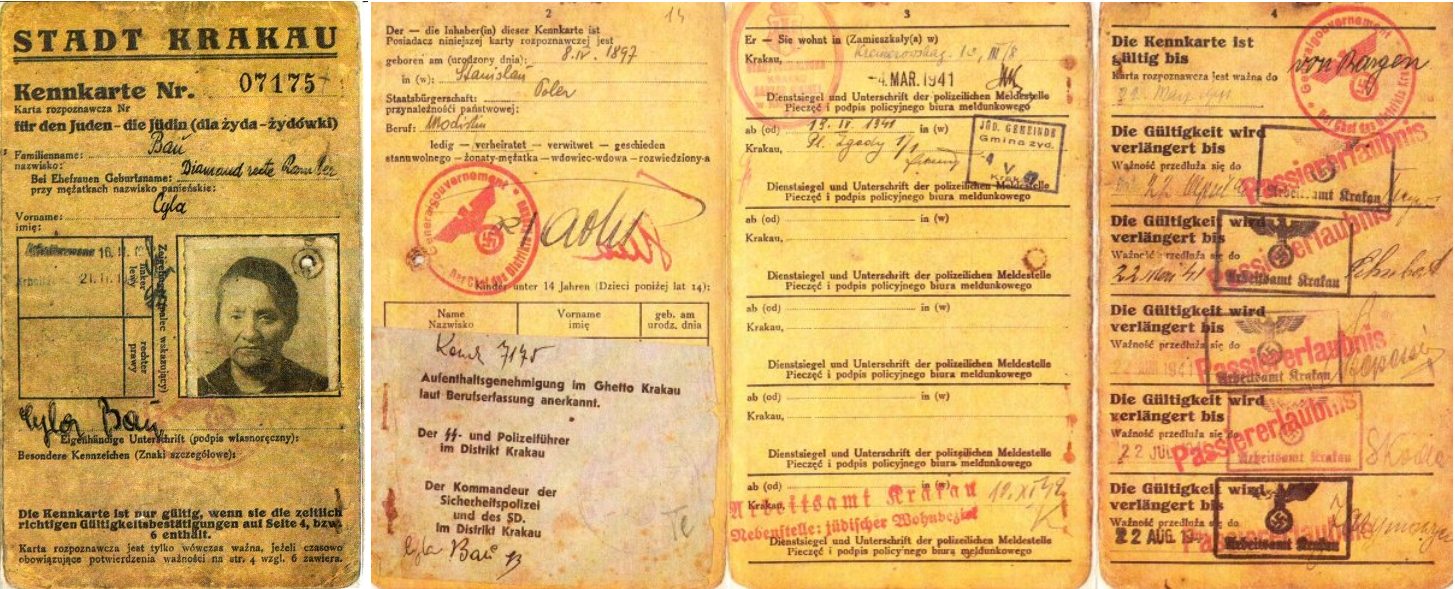 STADT KRAKAU
Kennkarte Nr. 07175
Karta rozpoznawcza Nr
für den Juden - die Jüdin (dla żyda - żydówki)
Familienname: Bau
nazwisko:
Bei Ehefrauen Geburtsname: Diamand recte
przy mężatkach nazwisko panieńskie:
Cyla
Vorname:
imię:
16. 11.
21. 11.
linker
lewy
rechter
prawy
Cyla Bau
Eigenhändige Unterschrift (podpis własnoręczny):
Besondere Kennzeichen (Znaki szczególowe):
Die Kennkarte ist nur gültig, wenn sie die zeitlich
richtigen Gültigkeitsbestätigungen auf Seite 4, bzw.
6 enthält.
Karta rozpoznawcza jest tylko wówczas ważna, jeżeli czasowo
obowiązujące potwierdzenia ważności na str. 4 wzgl. 6 zawiera.
2
14
Der — die Inhaber(in) dieser Kennkarte ist
Posiadacz niniejszej karty rozpoznawczej jest
geboren am (urodzony dnia): 8. IV. 1897
in (w): Stanislau
Staatsbürgerschaft: Poler
przynależności państwowej:
Beruf: Modistin
ledig — verheiratet — verwitwet — geschieden
stanu wolnego - żonaty-mężatka - wdowiec-wdowa - rozwiedziony-a
Generalgouvernement
Der Chef des Distrikts
Kinder unter 14 Jahren (Dzieci poniżej lat 14):
Name Vorname geb. am
Nazwisko imię urodz. dnia
7175
Aufenthaltsgenehmigung im Ghetto Krakau
laut Berufserfassung anerkannt.
Der SS- und Polizeiführer
im Distrikt Krakau
Der Kommandeur der
Sicherheitspolizei
und des SD.
im Distrikt Krakau
Cyla Bau
3
Er — Sie wohnt in (Zamieszkały(a) w)
Krakau,
-4. MAR. 1941
Dienstsiegel und Unterschrift der polizeilichen Meldestelle
Pieczęć i podpis policyjnego biura meldunkowego
ab (od) 19. IV 1941 in (w)
Krakau, Pl. Zgody
JÜD. GEMEINDE
Gmina żyd.
Dienstsiegel und Unterschrift der polizeilichen Meldestelle
Pieczęć i podpis policyjnego biura meldunkowego
ab (od) in (w)
Krakau,
Dienstsiegel und Unterschrift der polizeilichen Meldestelle
Pieczęć i podpis policyjnego biura meldunkowego
ab (od) in (w)
Krakau,
Dienstsiegel und Unterschrift der polizeilichen Meldestelle
Pieczęć i podpis policyjnego biura meldunkowego
ab (od) in (w)
Krakau,
Dienstsiegel und Unterschrift der polizeilichen Meldestelle
Pieczęć i podpis policyjnego biura meldunkowego
ab (od) in (w)
Krakau,
Arbeitsamt Krakau
Nebenstelle: jüdischer Wohnbezirk
Dienstsiegel und Unterschrift der polizeilichen Meldestelle
Pieczęć i podpis policyjnego biura meldunkowego
4
Die Kennkarte ist
gültig bis
Karta rozpoznawcza jest ważna do
Generalgouvernement
Der Chef des Distrikts
Die Gültigkeit wird
verlängert bis
Ważność przedłuża się do
Passiererlaubnis
Arbeitsamt Krakau
Die Gültigkeit wird
verlängert bis
Ważność przedłuża się do
Passiererlaubnis
Arbeitsamt Krakau
Die Gültigkeit wird
verlängert bis
Ważność przedłuża się do
Passiererlaubnis
Arbeitsamt Krakau
Die Gültigkeit wird
verlängert bis
Ważność przedłuża się do
22
Passiererlaubnis
Arbeitsamt Krakau
Die Gültigkeit wird
verlängert bis
Ważność przedłuża się do
22 AUG.
Passiererlaubnis
Arbeitsamt Krakau